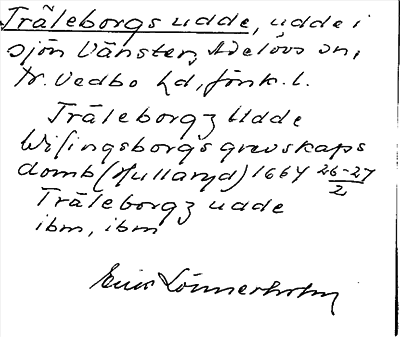 Träleborgs udde, udde i
sjön Vänstern, Adelövs sn,
N. Vedbo hd, Jönk. l.
Träleborgz Udde
Wisingsborgs grevskaps
domb (Hullaryd) 1664 26-27/2
Träleborgz udde
ibm, ibm
Erik Lönnerholm